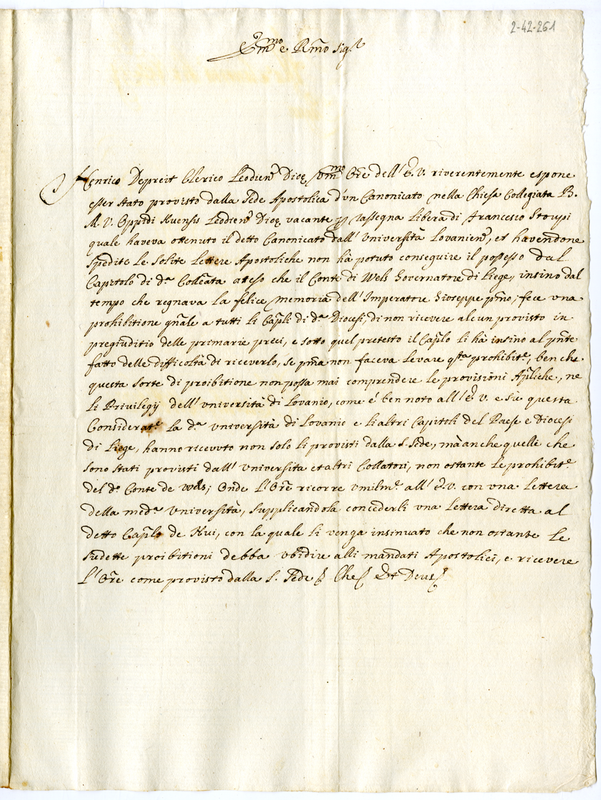 2-42-261
Em̃mo e Rmo Sigre
Henrico Despreit Clerico Leodien Dioc hum.mo Ore dell' E.V. riverentemente espone
esser stato provisto dalla Sede Apostolica d'un Canonicato nella Chiesa Collegiata B.
M. V. Oppidi Huensis Leodien Dioc vacante p rassegna libera di Francesco
quale haveva ottenuto il detto Canonicato dall' Università Lovanien, et havendone
spedite le solite lettere Apostoliche non hà potuto conseguire il possesso dal
Capitolo di d.a Colleata atteso che il Conte di Wels Governatore di Liege, insino dal
tempo che regnava la felice memoria dell' Imperatore Gioseppe p.mo, fece una
prohibitione gnale a tutti li Caplli di d.a Diocesi, di non ricevere alcun provisto in
pregiuditio delle primarie preci, e sotto quel pretesto il Caplo li hà insino al pnte
fatto delle difficoltà di riceverlo, se pma non faceva levare qsta prohibit.e, ben che
questa sorte di proibitione non possa mai comprendere le provisioni Apliche, ne
li Privilegij dell' università di Lovanio, come è ben noto all' E.V. e sù questa
Considerat.e la d.a università di Lovanio e li altri Capitoli del Paese e Diocesi
di Liege, hanno ricevuto non solo li provisti dalla S. Sede, mà anche quelle che
sono stati proviati dall' Università et altri Collatori, non ostante le prohibit.e
del d.o Conte de Wels; Onde l'Ore ricorre umilm.e all' E.V. con una lettera
della med.a Università, supplicandola concederli una lettera diretta al
detto Caplo de Hui, con la quale li venga insinuato che non ostante le
sudette proibitioni debba ubidire alli mandati Apostolici, e ricevere
l'Ore come provisto dalla S. Sede p Che Et Deus